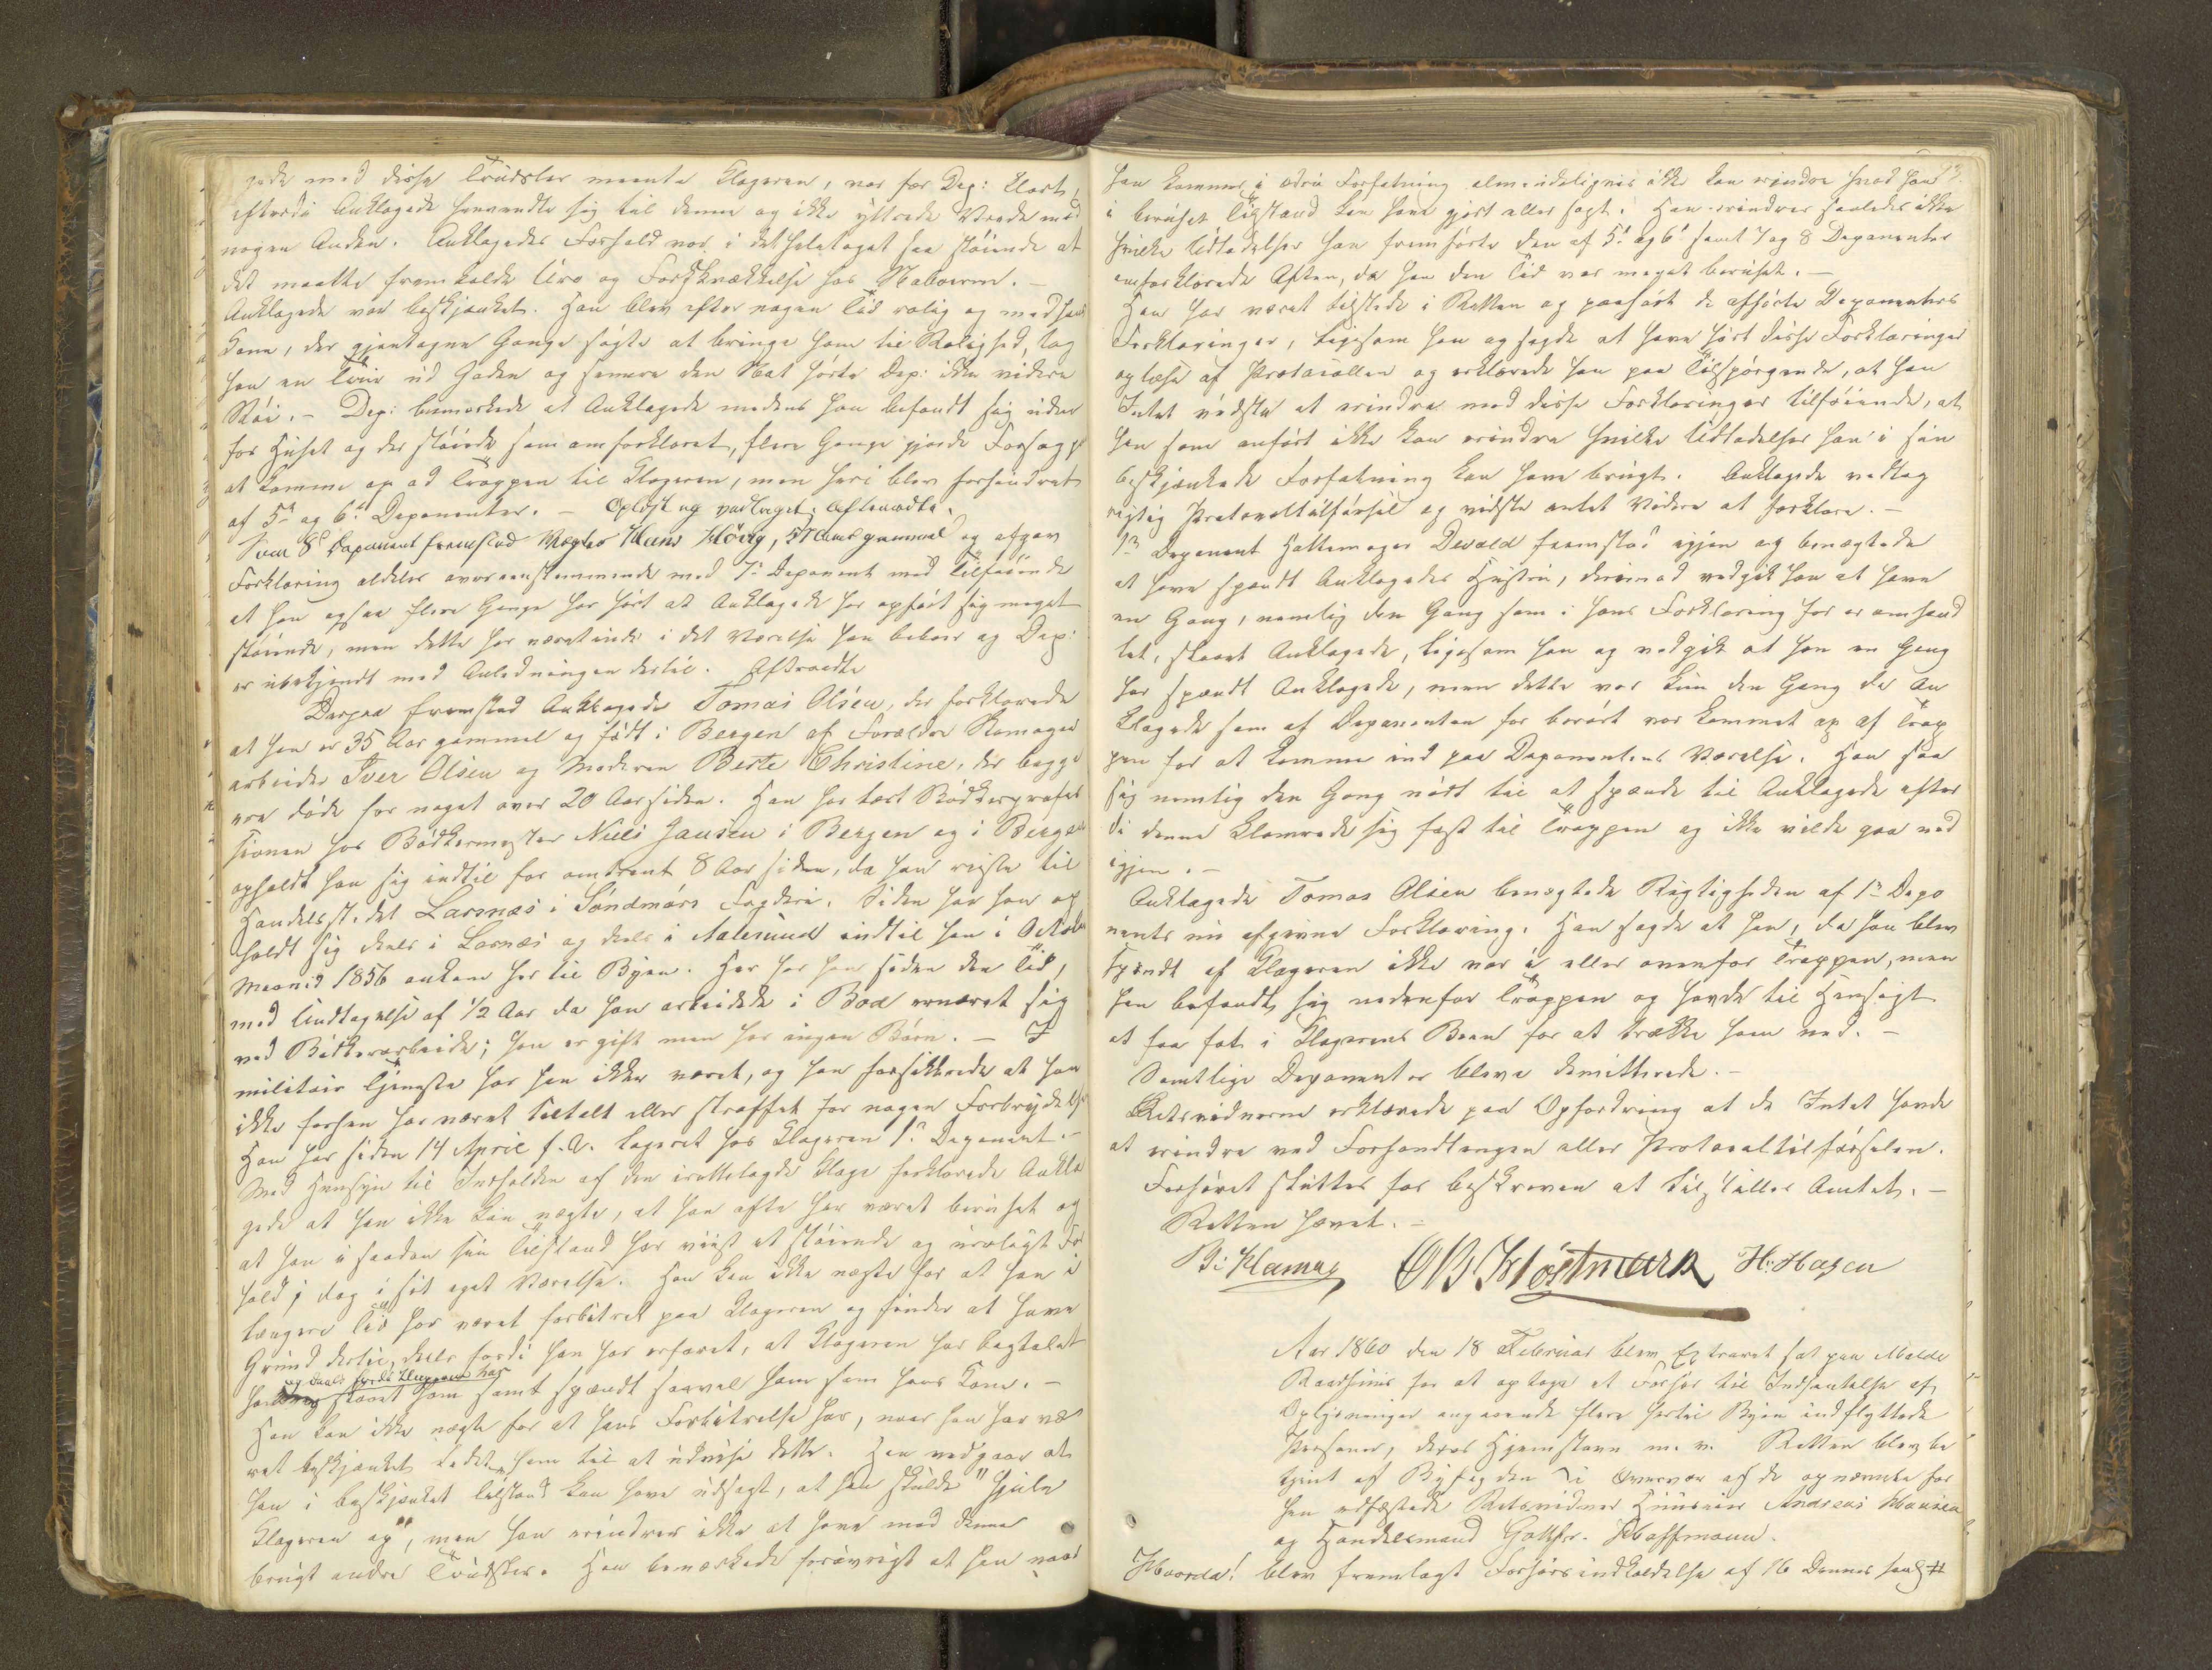 gede med disse Trudsler meente Klageren, var for Dep: klart,
eftersom Anklagede henvendte sig til denne og ikke yttrede Vrede mod
nogen Anden. Anklagedes Forhold var i det hele taget saa støiende at
det maatte fremkalde Uro og Forskrækkelse hos Naboerne. –
Anklagede var beskjænket. Han blev efter nogen Tid rolig og med hans
Kone, der gjentagne Gange søgte at bringe ham til Rolighed, tog
han en Tour ud Gaden og senere den Nat hørte Dep: ikke videre
Støi. – Dep: bemærkede at Anklagede medens han befandt sig uden
for Huset og der støiede som omforklaret, flere Gange gjorde Forsøg paa
at komme op ad Trappen til Klageren, men heri blev forhindret
af 5te og 6te Deponenter. – Oplæst og vedtaget. Aftraadte.
Som 8de Deponent fremstod Vægter Hans Høvig, gammel og afgav
Forklaring aldeles overeensstemmende med 7de Deponent med Tilføiende
at han ogsaa flere Gange har hørt at Anklagede har opført sig meget
støiende, men dette har været inde i det Værelse han beboer og Dep:
er ubekjendt med Anledningen dertil. Aftraadte
Derpaa fremstod Anklagede Tomas Olsen, der forklarede
at han er 35 Aar gammel og født i Bergen af Forældre Skomager
arbeider Iver Olsen og Moderen Berte Christine, der begge
ere døde for noget over 20 Aar siden. Han har lært Bødkerprofes
sionen hos Bødkermester Niels Jansen i Bergen og i Bergen
opholdt han sig indtil for omtrent 8 Aar siden, da han reiste til
Handelsstedet Larsnæs i Søndmørs Fogderi. Siden har han op
holdt sig deels i Larsnæs og deels i Aalesund indtil han i October
Maaned 1856 ankom her til Byen. Her har han siden den Tid,
med Undtagelse af 1/2 Aar da han arbeidede i Bod ernæret sig
ved Bødkerarbeide; han er gift men har ingen Børn. – I
militair Tjeneste har han ikke været, og han forsikkrede at han
ikke forhen har været tiltalt eller straffet for nogen Forbrydelse
Han har siden 14 April f. A. logeret hos Klageren 1ste Deponent. –
Med Hensyn til Indholden af den irettelagte Klage forklarede Ankla
gede at han ikke kan nægte, at han ofte har været beruset og
at han i saadan sin Tilstand har viist et støiende og uroligt For
hold, dog i sit eget Værelse. Han kan ikke nægte for at han i
længere Tid har været forbitret paa Klageren og finder at have
Grund dertil, deels fordi han har erfaret, at Klageren har bagtalet
og deels fordi Klageren har
ham slaaet ham samt spændt saavel ham som hans Kone. –
Han kan ikke nægte for at hans Forbitrelse har, naar han har væ
ret beskjænket ledet ham til at udvise dette. Han vedgaar at
han i beskjænket Tilstand kan have udsagt, at han skulde "hjule
Klageren op", men han erindrer ikke at have mod denne
brugt andre Trudsler. Han bemærkede forøvrigt at han naar
han kommer i ædru Forfatning almindeligviis ikke kan erindre hvad han
i beruset Tilstand kan have gjort eller sagt. Han erindrer saaledes ikke
hvilke Udladelser han fremførte den af 5te og 6te samt 7 og 8 Deponenter
omforklarede Aften, da han den Tid var meget beruset. –
Han har været tilstede i Retten og paahørt de afhørte Deponenters
Forklaringer, ligesom han og sagde at have hørt disse Forklaringer
oplæse af Protocollen og erklærede han paa Tilspørgende, at han
Intet vidste at erindre mod disse Forklaringer tilføiende, at
han som anført ikke kan erindre hvilke Udladelser han i sin
beskjænkede Forfatning kan have brugt. Anklagede vedtog
rigtig Protocoltilførsel og vidste intet Videre at forklare. –
1ste Deponent Hattemager Devold fremstod igjen og benægtede
at have spændt Anklagedes Hustru, derimod vedgik han at have
en Gang, nemlig den Gang som i hans Forklaring før er omhand
let, slaaet Anklagede, ligesom han og vedgik at han en Gang
har spændt Anklagede, men dette var kun den Gang da An
klagede som af Deponenten før berørt var kommet op af Trap
pen for at komme ind paa Deponentens Værelse. Han saa
sig nemlig den Gang nødt til at spænde til Anklagede efter
di denne klamrede sig fast til Trappen og ikke vilde gaa ned
igjen. –
Anklagede Tomas Olsen benægtede Rigtigheden af 1ste Depo
nents nu afgivne Forklaring. Han sagde at han, da han blev
spændt af Klageren ikke var i eller ovenfor Trappen, men
han befandt sig nedenfor Trappen og havde til Hensigt
at faa fat i Klagerens Been for at trække ham ned. –
Samtlige Deponenter bleve demitterede. –
Retsvidnerne erklærede paa Opfordring at de Intet havde
at erindre ved Forhandlingen eller Protocoltilførselen.
Forhøret sluttes for beskreven at tilstilles Amtet. –
Retten hævet. –
B: Hamre H: Hagen
Aar 1860 den 18 Februar blev Extraret sat paa Molde
Raadhuus for at optage et Forhør til Indhentelse af
Oplysninger angaaende flere hertil Byen indflyttede
Personer, deres Hjemstavn m. v. Retten blev be
tjent af Byfogden i Overvær af de opnævnte for
hen edfæstede Retsvidner Huuseier Andreas Hansen
og Handelsmand Gottfr. Hoffmann.
Hvorda! blev fremlagt Forhørsindkaldelse af 16 Dennes